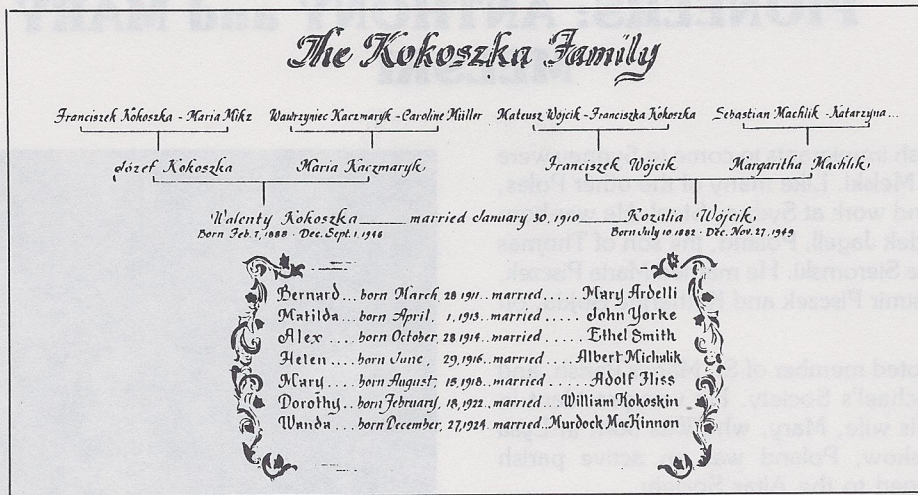 The Kokoszka Family
Franciszek Kokoszka - Maria Mikz Wawrzyniec Kaczmaryk - Caroline Müller Mateusz Wójcik - Franciszka Kokoszka Sebastian Machlik - Katarzyna...
Józef Kokoszka Maria Kaczmaryk Franciszek Wójcik Margaritha Machlik
Walenty Kokoszka married January 30, 1910 Rozalia Wójcik
Born Feb. 7, 1888 - Dec. Sept. 1, 1946 Born July 10 1882 - Dec. Nov. 27, 1949
Bernard... born March, 28 1911.. married.... Mary Ardelli
Matilda... born April, 1, 1913.. married..... John Yorke
Alex... born October, 28 1914.. married..... Ethel Smith
Helen... born June, 29, 1916.. married.... Albert Michalik
Mary... born August, 15, 1918.. married..... Adolf Fliss
Dorothy... born February, 18, 1922.. married... William Kokoskin
Wanda... born December, 27, 1924. married.. Murdock MacKinnon